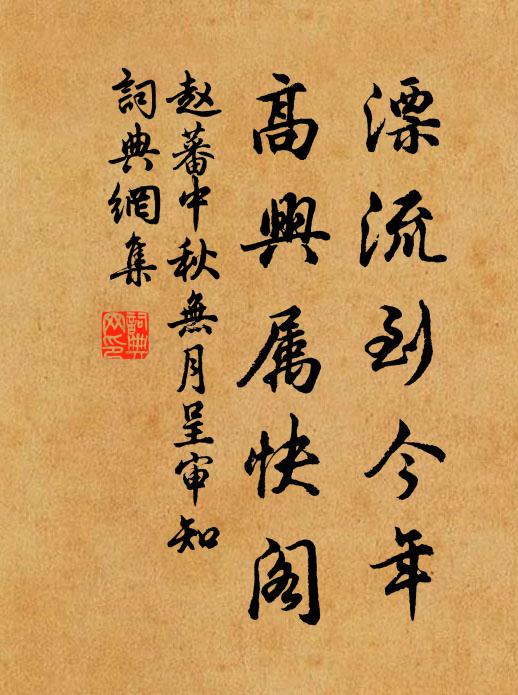 漂流到今年
高興属快阁
赵蕃中秋無月呈审知
詞典網集
詞典
网印